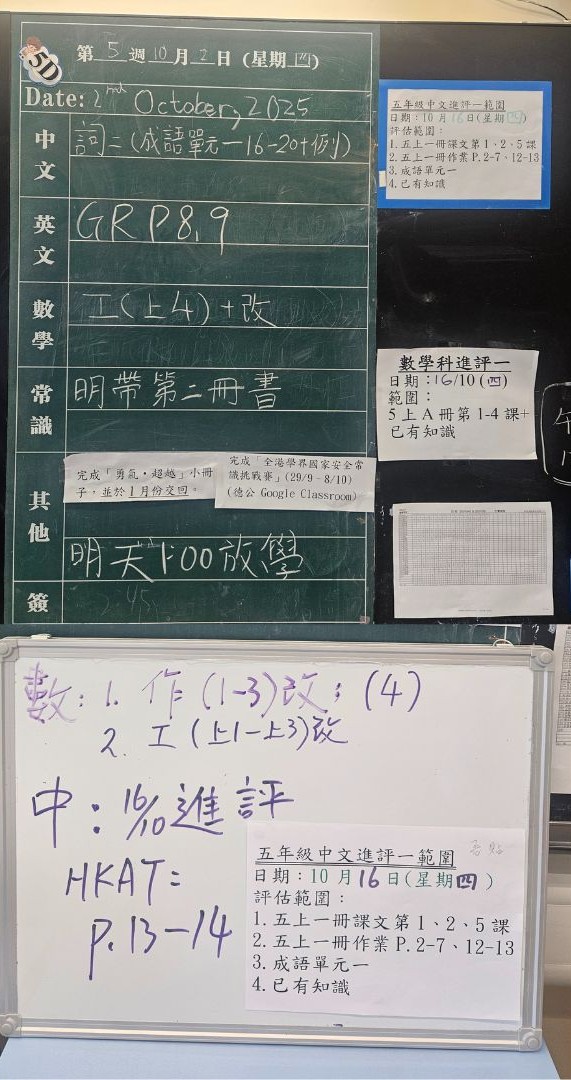 5D
第 5 週 10 月 2 日 (星期 四)
Date: 2nd October, 2025
中文
詞二(成語單元一16-20+例)
英文
GR P8,9
數學
工(上4)+改
常識
明帶第二冊書
其他
完成「勇氣·超越」小冊
子,並於1月份交回。
完成「全港學界國家安全常
識挑戰賽」(29/9 - 8/10)
(德公 Google Classroom)
明天1:00放學
簽
五年級中文進評一範圍
日期:10 月 16 日(星期四)
評估範圍:
1.五上一冊課文第 1、2、5 課
2.五上一冊作業 P.2-7、12-13
3.成語單元一
4.已有知識
數學科進評一
日期:16/10 (四)
範圍:
5 上 A 冊第 1-4 課+
已有知識
數:1. 作 (1-3)改;(4)
2. 工 (上1-上3)改
中:16/10 進評
HKAT:
P.13-14
五年級中文進評一範圍
日期:10 月 16 日(星期四)
評估範圍:
1.五上一冊課文第 1、2、5 課
2.五上一冊作業 P.2-7、12-13
3.成語單元一
4.已有知識